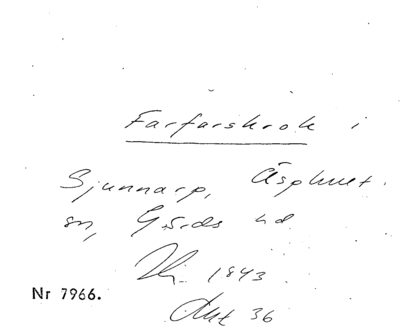 Farfarskrok i
Sjunnarp, Äsphult
sn, Gärds hd
1843
Nr 7966.
Akt 36